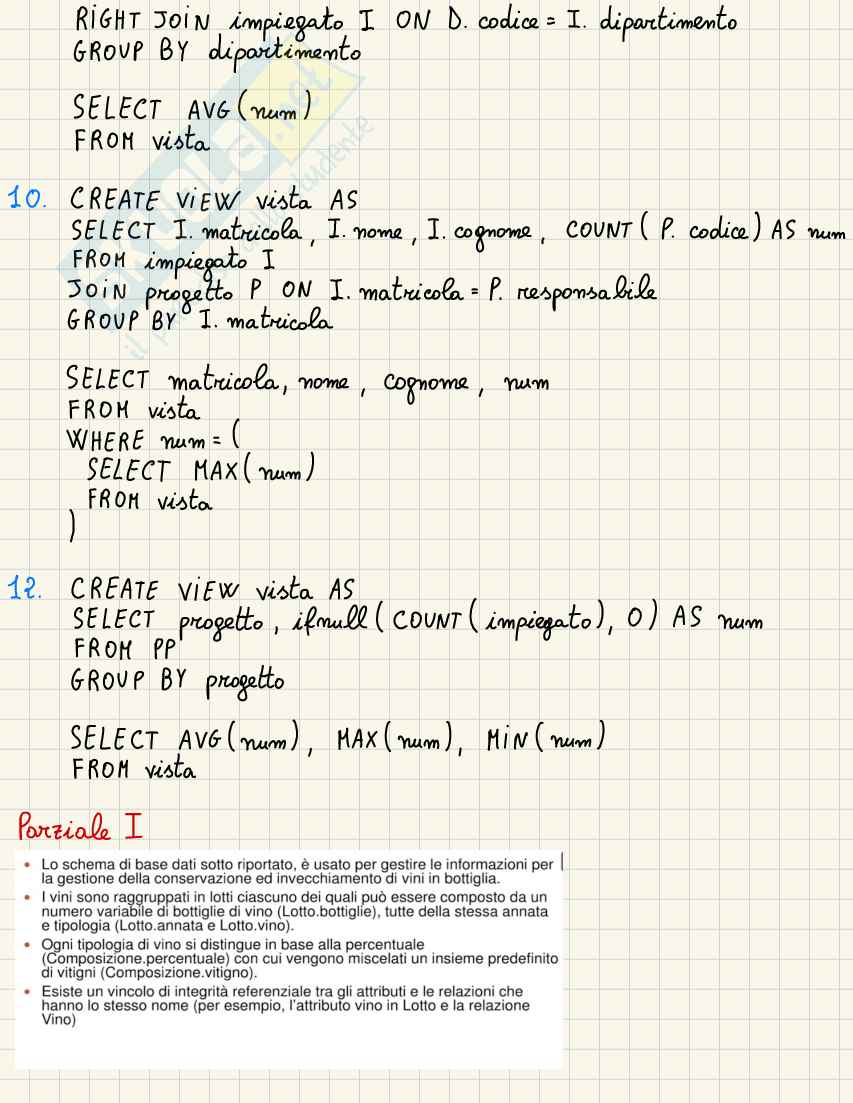 RIGHT JOIN impiegato I ON D. codice = I. dipartimento
GROUP BY dipartimento
SELECT AVG(num)
FROM vista
10. CREATE VIEW vista AS
SELECT I. matricola, I. nome, I. cognome, COUNT( P. codice) AS num
FROM impiegato I
JOIN progetto P ON I. matricola = P. responsabile
GROUP BY I. matricola
SELECT matricola, nome, cognome, num
FROM vista
WHERE num = (
SELECT MAX(num)
FROM vista
)
12. CREATE VIEW vista AS
SELECT progetto, ifnull(COUNT(impiegato), 0) AS num
FROM PP
GROUP BY progetto
SELECT AVG(num), MAX(num), MIN(num)
FROM vista
Parziale I
• Lo schema di base dati sotto riportato, è usato per gestire le informazioni per
la gestione della conservazione ed invecchiamento di vini in bottiglia.
• I vini sono raggruppati in lotti ciascuno dei quali può essere composto da un
numero variabile di bottiglie di vino (Lotto.bottiglie), tutte della stessa annata
e tipologia (Lotto.annata e Lotto.vino).
• Ogni tipologia di vino si distingue in base alla percentuale
(Composizione.percentuale) con cui vengono miscelati un insieme predefinito
di vitigni (Composizione.vitigno).
• Esiste un vincolo di integrità referenziale tra gli attributi e le relazioni che
hanno lo stesso nome (per esempio, l'attributo vino in Lotto e la relazione
Vino)